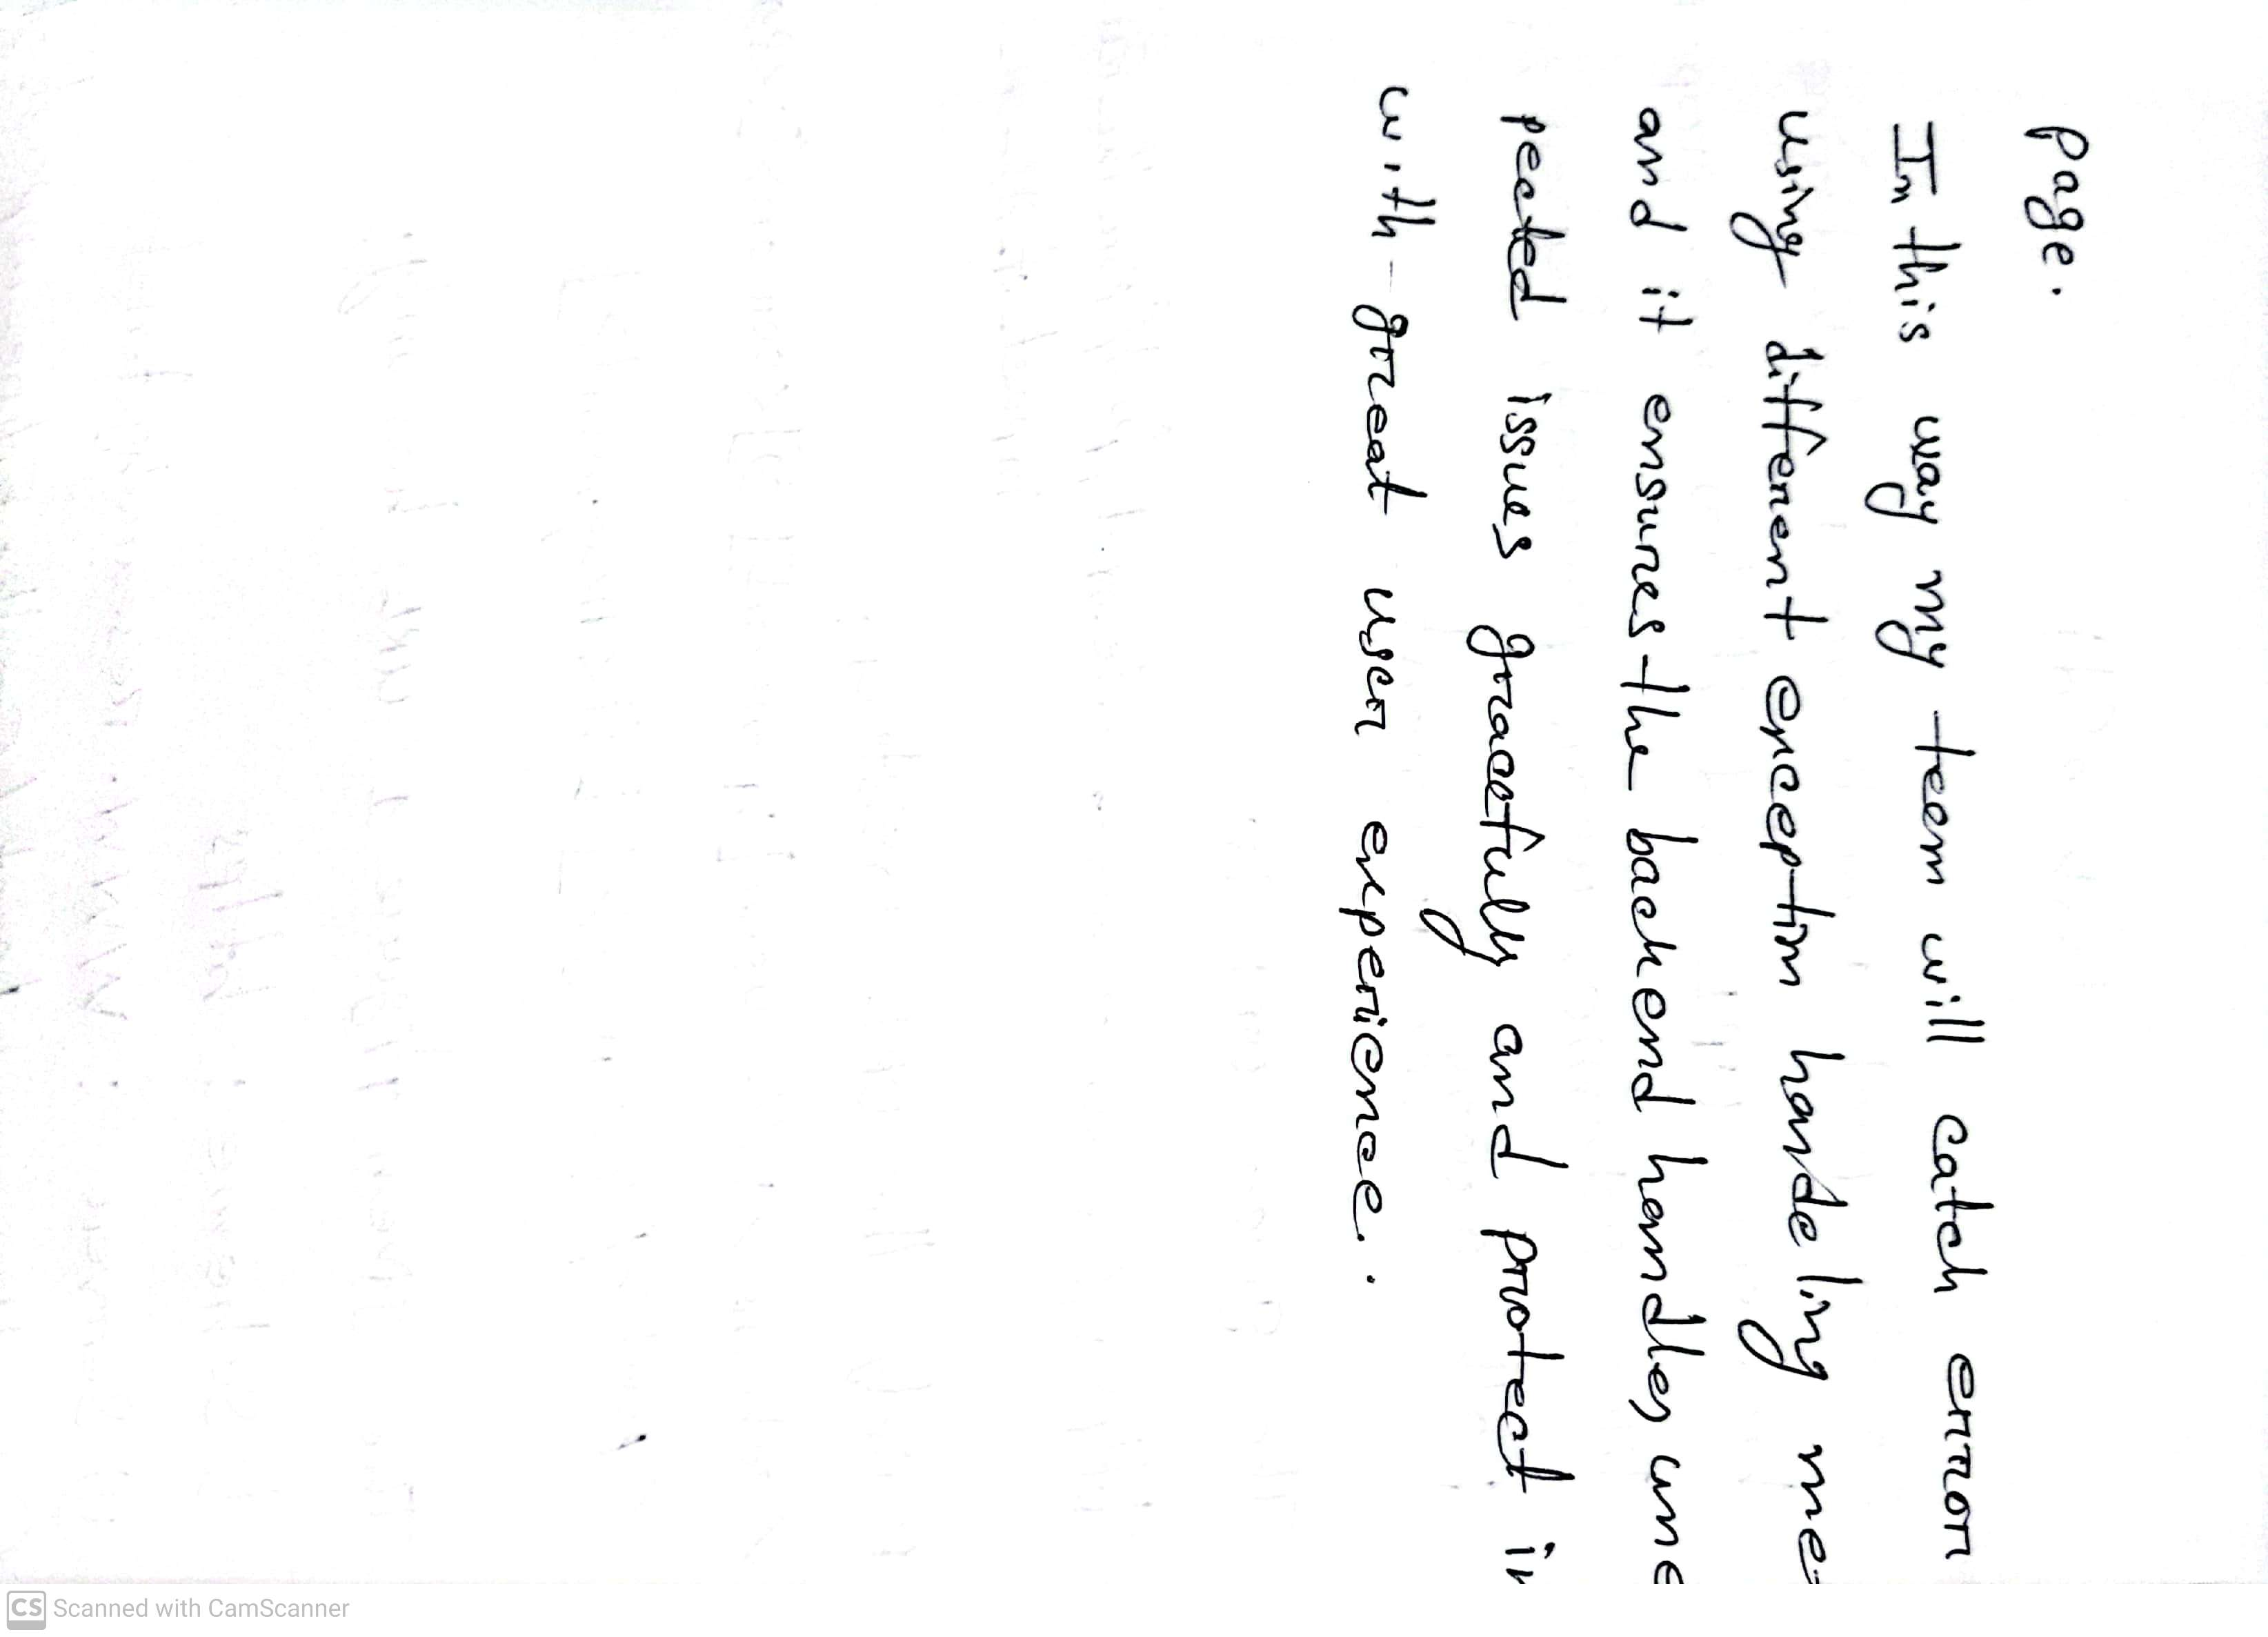 page.
In this way my team will catch error
using different exception handeling me
and it ensures the backend handles une
pected issues gracefully and protect in
with great user experience.
CS Scanned with CamScanner